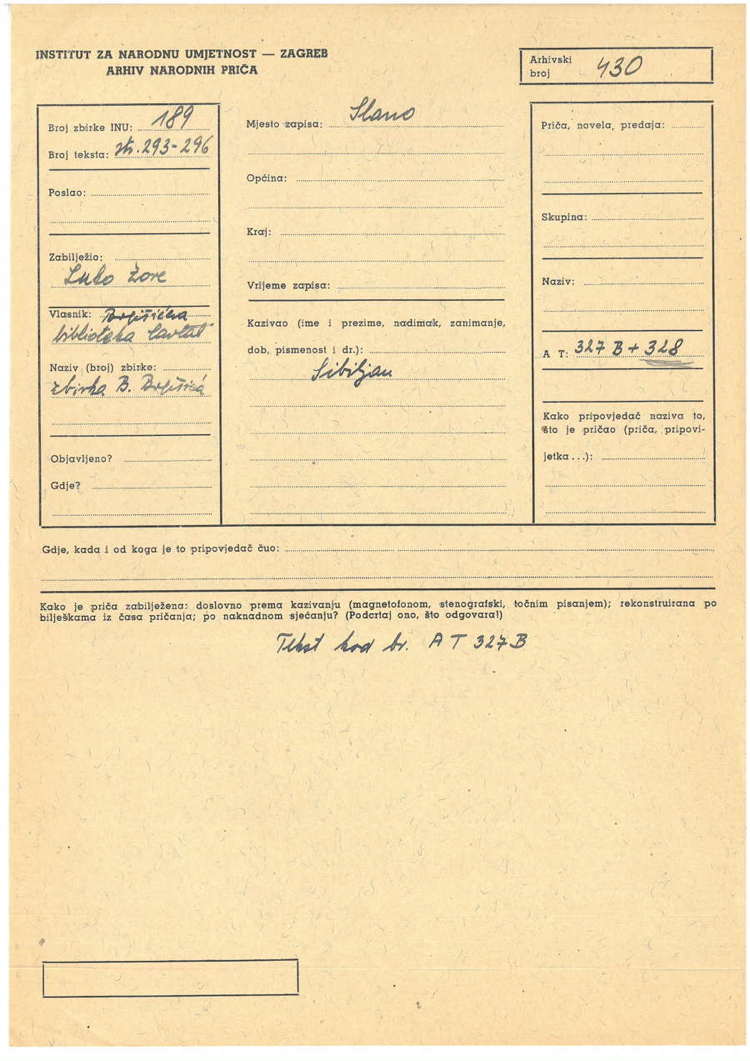 INSTITUT ZA NARODNU UMJETNOST — ZAGREB
ARHIV NARODNIH PRIČA
Arhivski
broj 430
Broj zbirke INU: 189
Broj teksta: str. 293-296
Poslao:
Zabilježio:
Luko Zore
Vlasnik: Bogišićeva
biblioteka Cavtat
Naziv (broj) zbirke:
zbirka B. Bogišića
Objavljeno?
Gdje?
Mjesto zapisa: Slano
Općina:
Kraj:
Vrijeme zapisa:
Kazivao (ime i prezime, nadimak, zanimanje,
dob, pismenost i dr.):
Sibiljan
Priča, novela, predaja:
Skupina:
Naziv:
A T: 327 B + 328
Kako pripovjedač naziva to,
što je pričao (priča, pripovi-
jetka...):
Gdje, kada i od koga je to pripovjedač čuo:
Kako je priča zabilježena: doslovno prema kazivanju (magnetofonom, stenografski, točnim pisanjem); rekonstruirana po
bilješkama iz časa pričanja; po naknadnom sjećanju? (Podcrtaj ono, što odgovara!)
Tekst kod br. AT 327 B